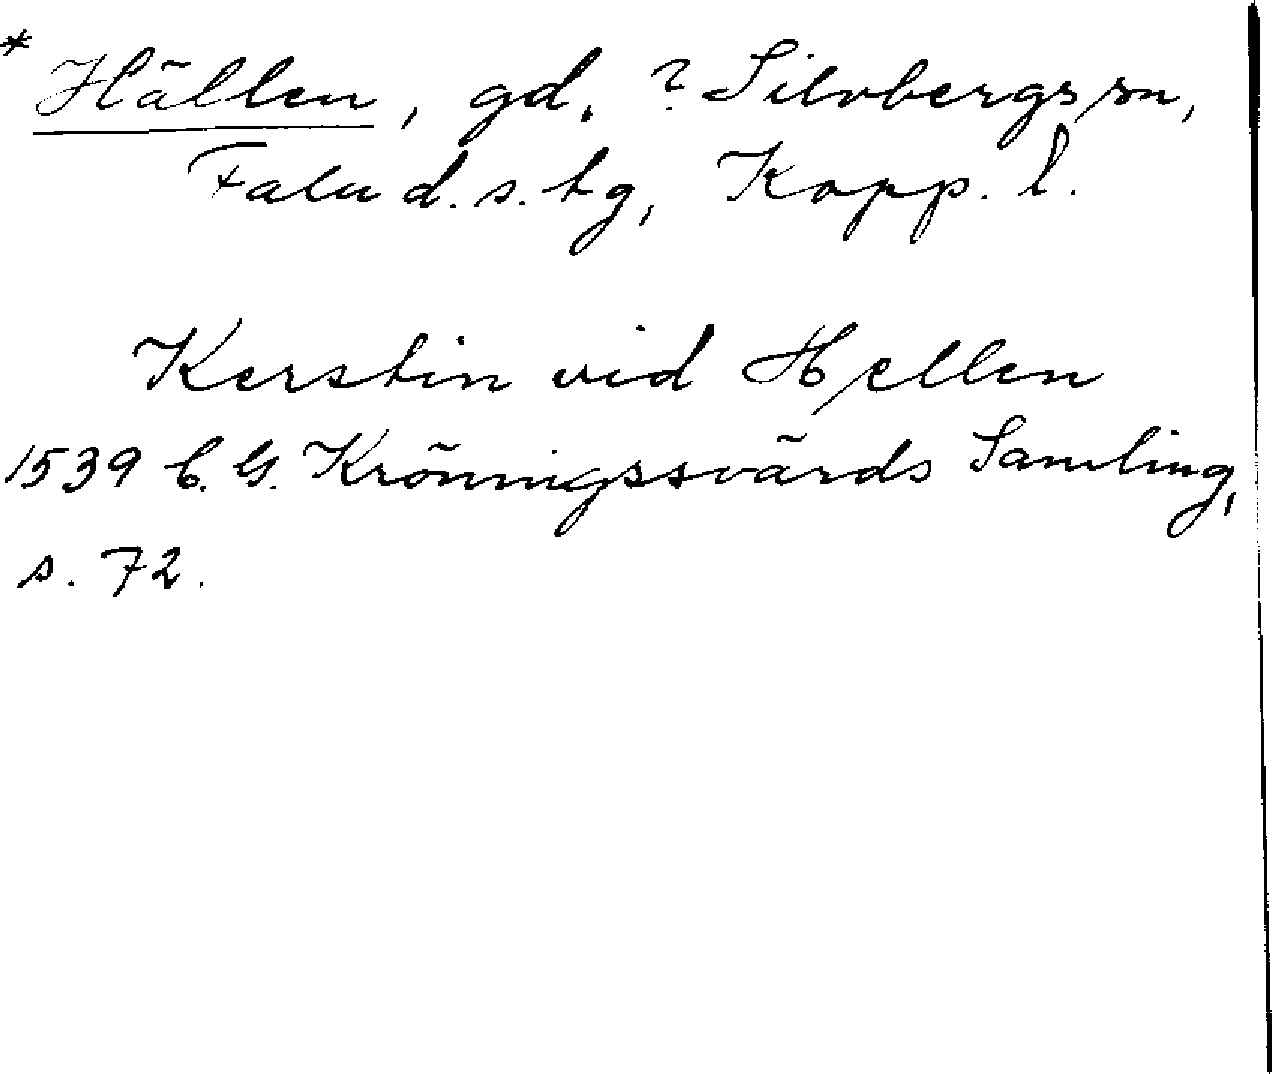 * Hällen, gd, ? Silvbergs sn,
Falu d. s. tg, Kopp. l.
Kerstin vid Hellen
1539 C. G. Krönnigssvärds Samling,
s. 72.